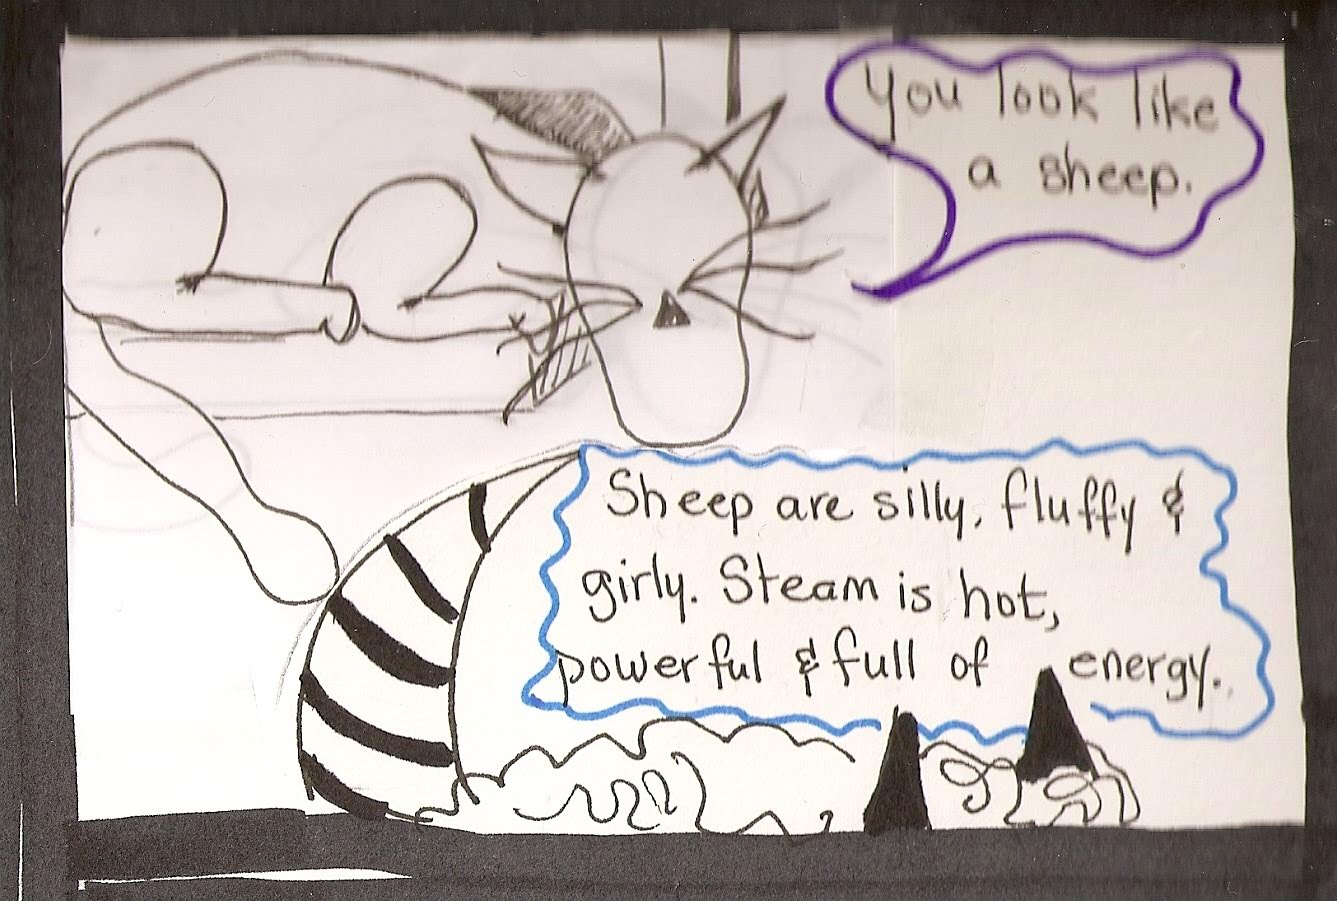 You look like
a sheep.
Sheep are silly, fluffy &
girly. Steam is hot,
powerful & full of energy.